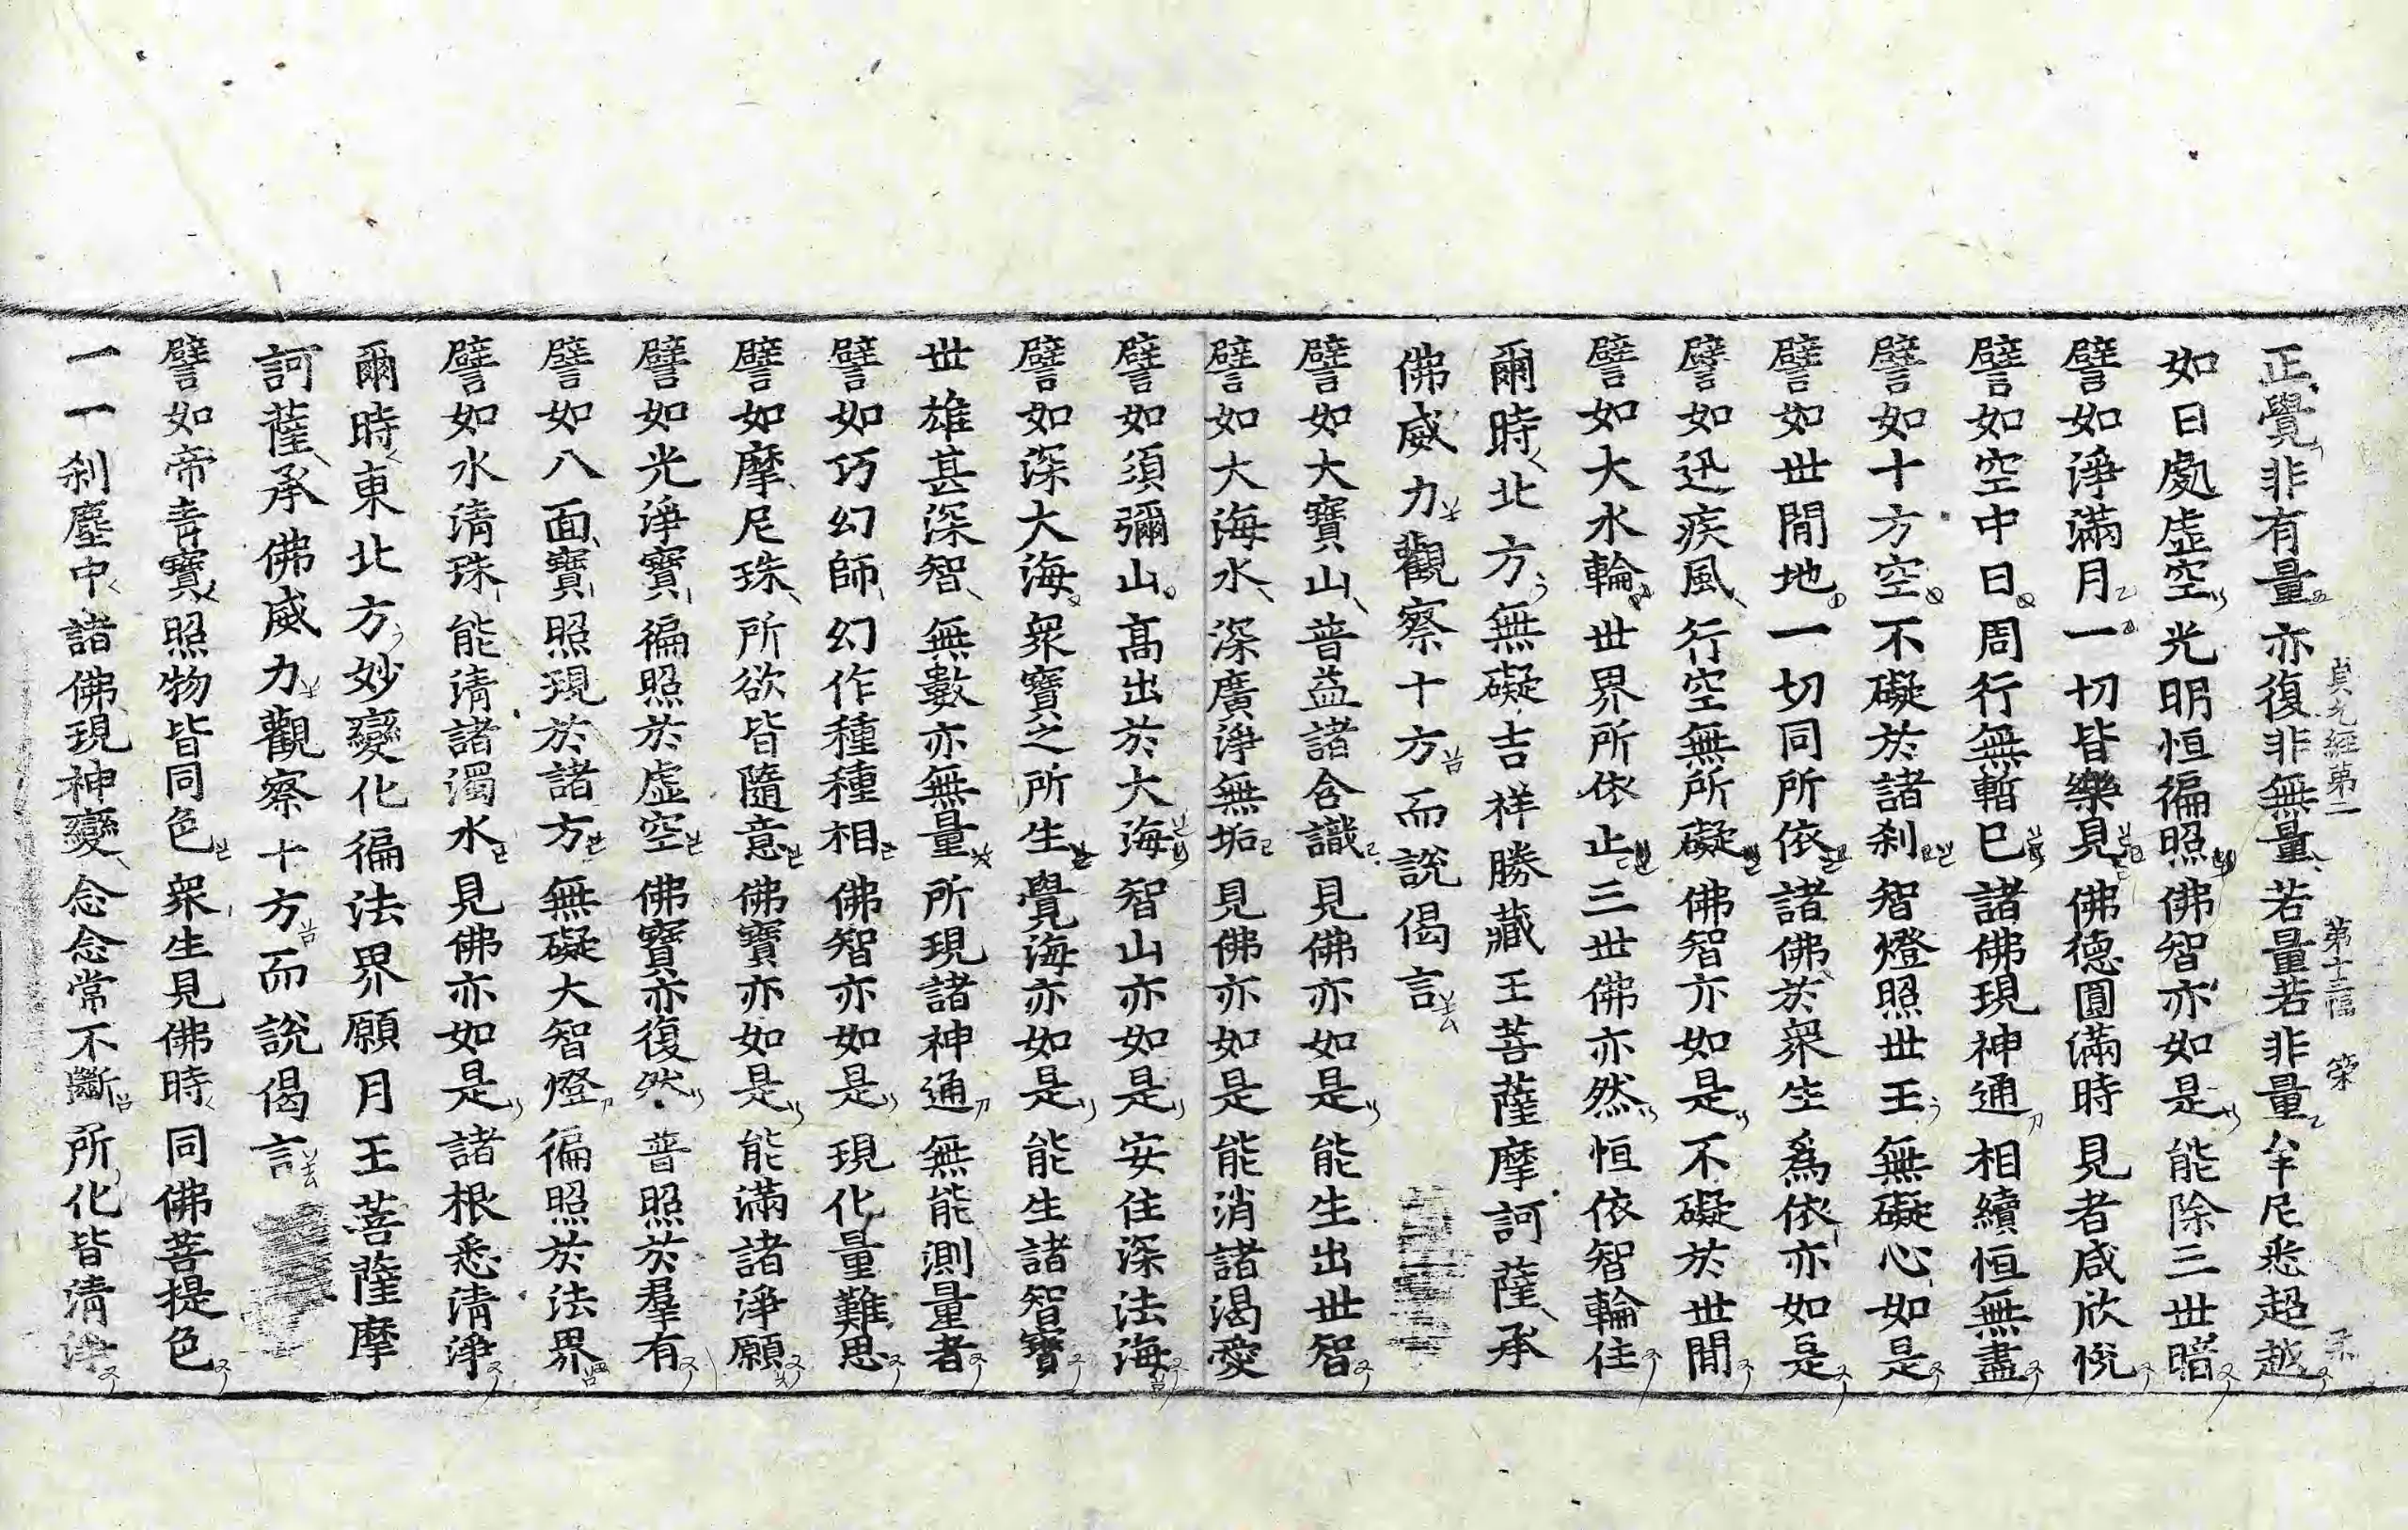 正覺非有量亦復非無量若量若非量牟尼悉超越
如日處虛空光明恒徧照佛智亦如是能除三世暗
譬如淨滿月一切皆樂見佛德圓滿時見者咸欣悅
譬如空中日周行無暫已諸佛現神通相續恒無盡
譬如十方空不礙於諸刹智燈照世王無礙心如是
譬如世間地一切同所依諸佛於衆生爲依亦如是
譬如迅疾風行空無所礙佛智亦如是不礙於世間
譬如大水輪世界所依止三世佛亦然恒依智輪住
爾時北方無礙吉祥勝藏王菩薩摩訶薩承
佛威力觀察十方而說偈言
譬如大寶山普益諸含識見佛亦如是能生出世智
譬如大海水深廣淨無垢見佛亦如是能消諸渴愛
譬如須彌山高出於大海智山亦如是安住深法海
譬如深大海衆寶之所生覺海亦如是能生諸智寶
世雄甚深智無數亦無量所現諸神通無能測量者
譬如巧幻師幻作種種相佛智亦如是現化量難思
譬如摩尼珠所欲皆隨意佛寶亦如是能滿諸淨願
譬如光淨寶徧照於虛空佛寶亦復然普照於羣有
譬如八面寶照現於諸方無礙大智燈徧照於法界
譬如水清珠能清諸濁水見佛亦如是諸根悉清淨
爾時東北方妙變化徧法界願月王菩薩摩
訶薩承佛威力觀察十方而說偈言
譬如帝青寶照物皆同色衆生見佛時同佛菩提色
一一刹塵中諸佛現神變念念常不斷所化皆清淨